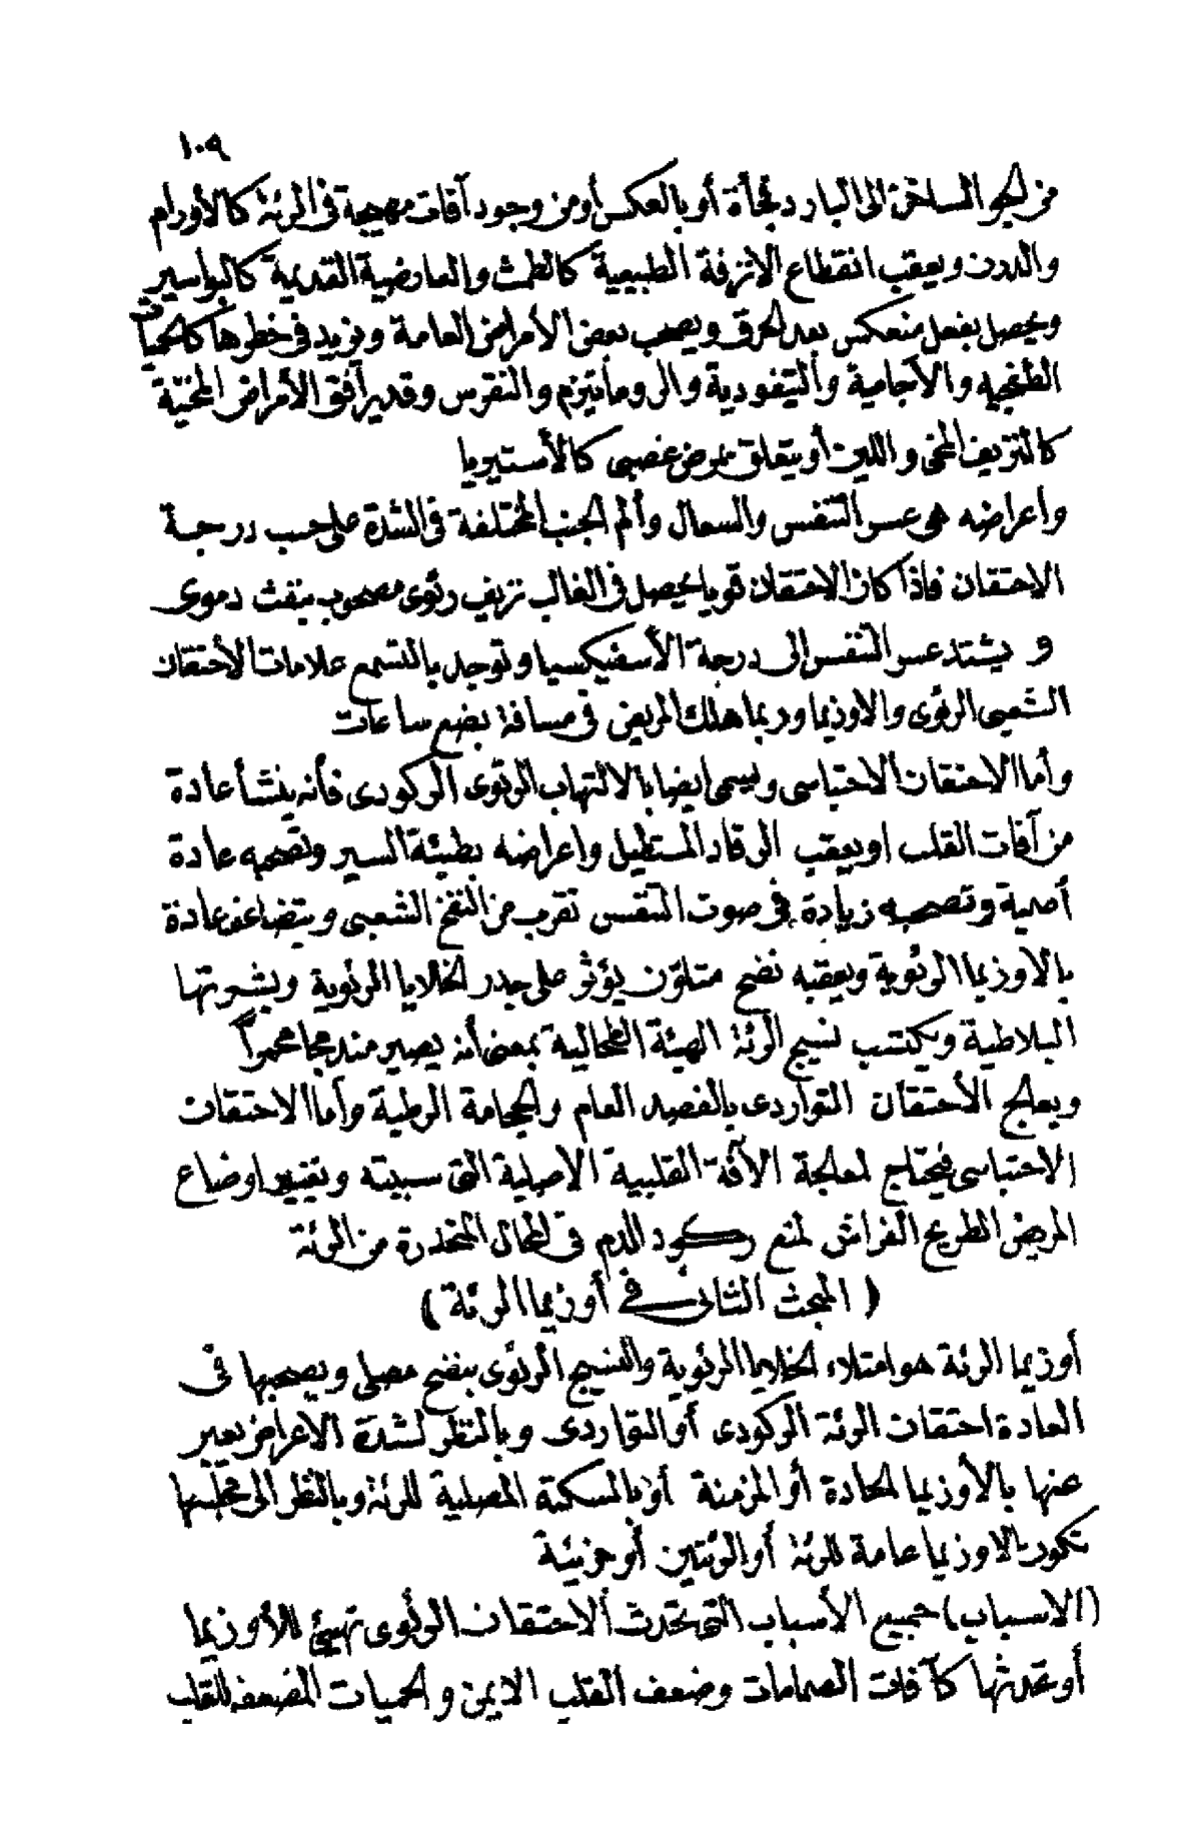 ١٠٩
من الجو الساخن الى البارد فجأة أو بالعكس أو من وجود آفات مهيجة فى الرئة كالأورام
والدرن ويعقب انقطاع الانزفة الطبيعية كالطمث والعارضية القديمة كالبواسير
ويحصل بفعل منعكس بعد الحرق ويصحب بعض الأمراض العامة ويزيد فى خطرها كالحميات
الطفحيه والآجامية والتيفودية والروماتيزم والنقرس وقد يرافق الأمراض المخيّة
كالنزيف المخى واللين أو يتعلق بمرض عصبى كالأستيريا
واعراضه هى عسر التنفس والسعال وألم الجنب المختلفة فى الشدة على حسب درجة
الاحتقان فاذا كان الاحتقان قويا يحصل فى الغالب نزيف رئوى مصحوب بنفث دموى
و يشتد عسر التنفس إلى درجة الأسفيكسيا وتوجد بالتسمع علامات الأحتقان
الشعبى الرئوى والاوزيما وربما هلك المريض فى مسافة بضع ساعات
وأما الاحتقان الاحتباسى ويسمى ايضا بالالتهاب الرئوى الركودى فأنه ينشأ عادة
من آفات القلب او يعقب الرقاد المستطيل واعراضه بطيئة السير وتصحبه عادة
أصمية وتصحبه زيادة فى صوت التنفس تقرب من النفخ الشعبى ويتضاعف عادة
بالاوزيما الرئوية ويعقبه نضح متلوّن يؤثر على جدر الخلايا الرئوية وبشرتها
البلاطية ويكتسب نسيج الرئة الهيئة الطحالية بمعنى أنه يصير مندمجا محمراً
ويعالج الأحتقان التواردى بالفصد العام والحجامة الرطبة وأما الاحتقان
الاحتباسى فيحتاج لمعالجة الآفة القلبية الاصلية التى سببته وتغيير اوضاع
المريض الطريح الفراش لمنع ركود الدم فى المحال المنحدرة من الرئة
( المبحث الثانى فى أوزيما الرئة )
أوزيما الرئة هو امتلاء الخلايا الرئوية والنسيج الرئوى بنضح مصلى ويصحبها فى
العادة احتقان الرئة الركودى أو التواردى وبالنظر لشدة الاعراض يعبر
عنها بالأوزيما الحادة أو المزمنة أو بالسكتة المصلية للرئة وبالنظر الى مجلسها
تكون الاوزيما عامة للرئة أو الرئتين أو جزئية
(الاسباب) جميع الأسباب التى تحدث الاحتقان الرئوى تهيئ للأوزيما
أو تحدثها كآفات الصمامات وضعف القلب الايمن والحميات المضعفه للقلب